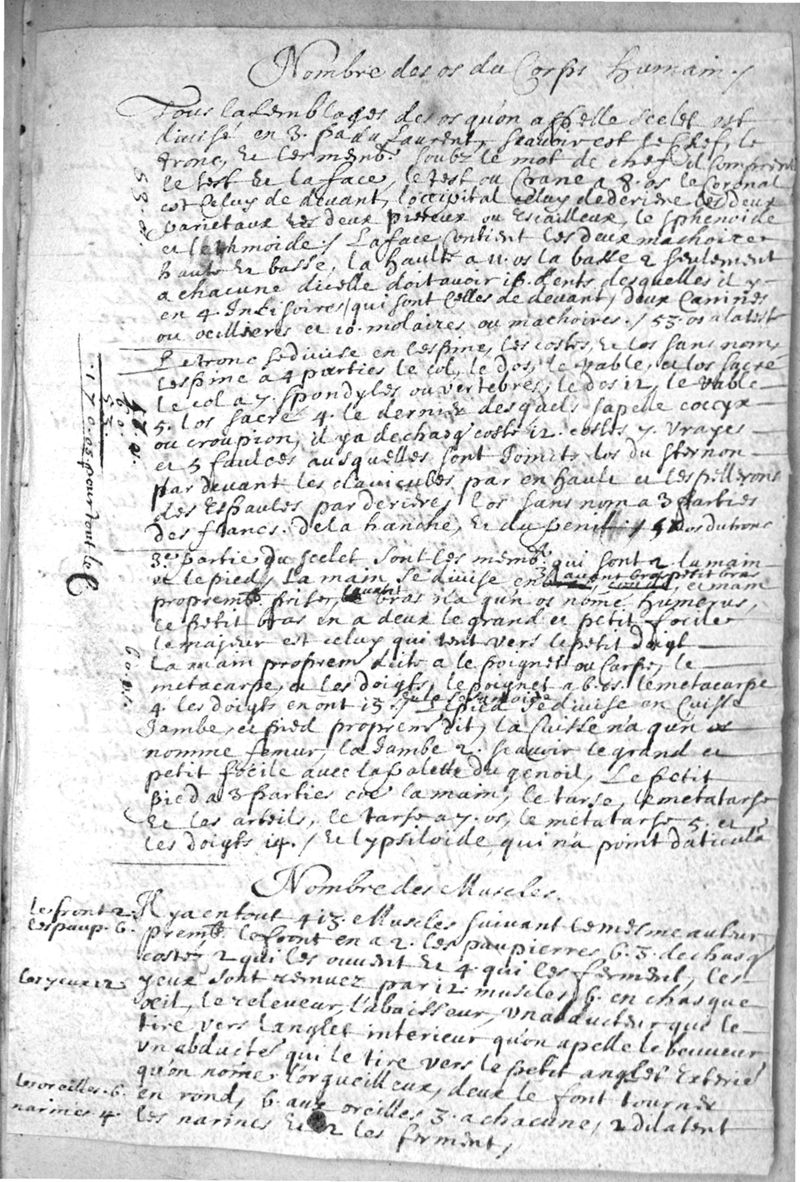 Nombre des os du Corps humain /
Tous lassemblages des os qu'on appelle scelet est
divisé en 3. par du Laurent, scavoir est le Chef, le
tronc, et les memb. soubz le mot de chef il comprent
le test et la face, le test ou Crane a 8. os le Coronal
est celuy de devant, loccipital celuy dederiere les deux
parietaux les deux pierreux ou Escailleux, le sphenoide
et lethmoide / La face contient les deux machoires
haute et basse, la haulte a 11. os la basse 2 seulement
a chacune dicelle doit avoir 16. dents desquelles il y
en 4. Incisoires (qui sont celles de devant, deux Canines
ou oeillieres et 10. molaires ou machoires. / 53. os a la teste
53. os.
Le tronc se divise en lespine, les costes, et los sans nom,
lespine a 4 parties le col, le dos, le rable, et los sacré
le col a 7. spondyles ou vertebres, le dos 12, le rable
5. los sacré 4. le dernier desquels sapelle coccyx
ou croupion, il y a de chasq costé 12. costes 7. vrayes
et 5 faulces ausquelles sont Joincts los du sternon
par devant les clavicules par en hault et les
des Espaules par deriere, los sans nom a 3 parties
des flancs. de la hanche, et du penil / 57 os du tronc
57. os.
60.
53.
170. os pour tout le C
3e. partie du scelet sont les memb. qui sont 2. la main
et le pied, La main se divise en bras, petit bras, et main
propremt. dite, le bras n'a qu'un os nomé humerus,
le petit bras en a deux le grand et petit focile
le majeur est celuy qui tent vers le petit doigt
la main proprem dite a le poignet ou carpe, le
metacarpe, et les doigts, le poignet a 8. os. le metacarpe
4. les doigts en ont 15. / Le pied se divise en Cuisse
Jambe, et pied proprem dit, la Cuisse n'a qu'un os
nomme femur, la Jambe 2. scavoir le grand et
petit focile avec la palette du genoil, Le petit
pied a 3 parties coe la main, le tarse, le metatarse
et les arteils, le tarse a 7. os, le metatarse 5. et
les doigts 14. / et lypsiloide, qui n'a point daticula
60. os.
Nombre des Muscles.
les front 2.
les paup. 6.
Il y a en tout 415. Muscles suivant le mesme auteur
premt. le front en a 2. les paupierres 6. 3. de chasq
costé, 2 qui les ouvent et 4. qui les ferment, les
les yeux 12
yeux sont remuez par 12. muscles, 6. en chasque
oeil, le releveur, l'abaisseur, un adducteur qui le
tire vers langlet interieur qu'on apelle le beuveur
un abducte qui le tire vers le petit anglet Exterié
qu'on nome lorgueilleux, deux le font tourner
les oreilles. 6.
narines. 4.
en rond, 6. aux oreilles 3. a chacune, 2 dilatent
les narines et 2 les ferment,